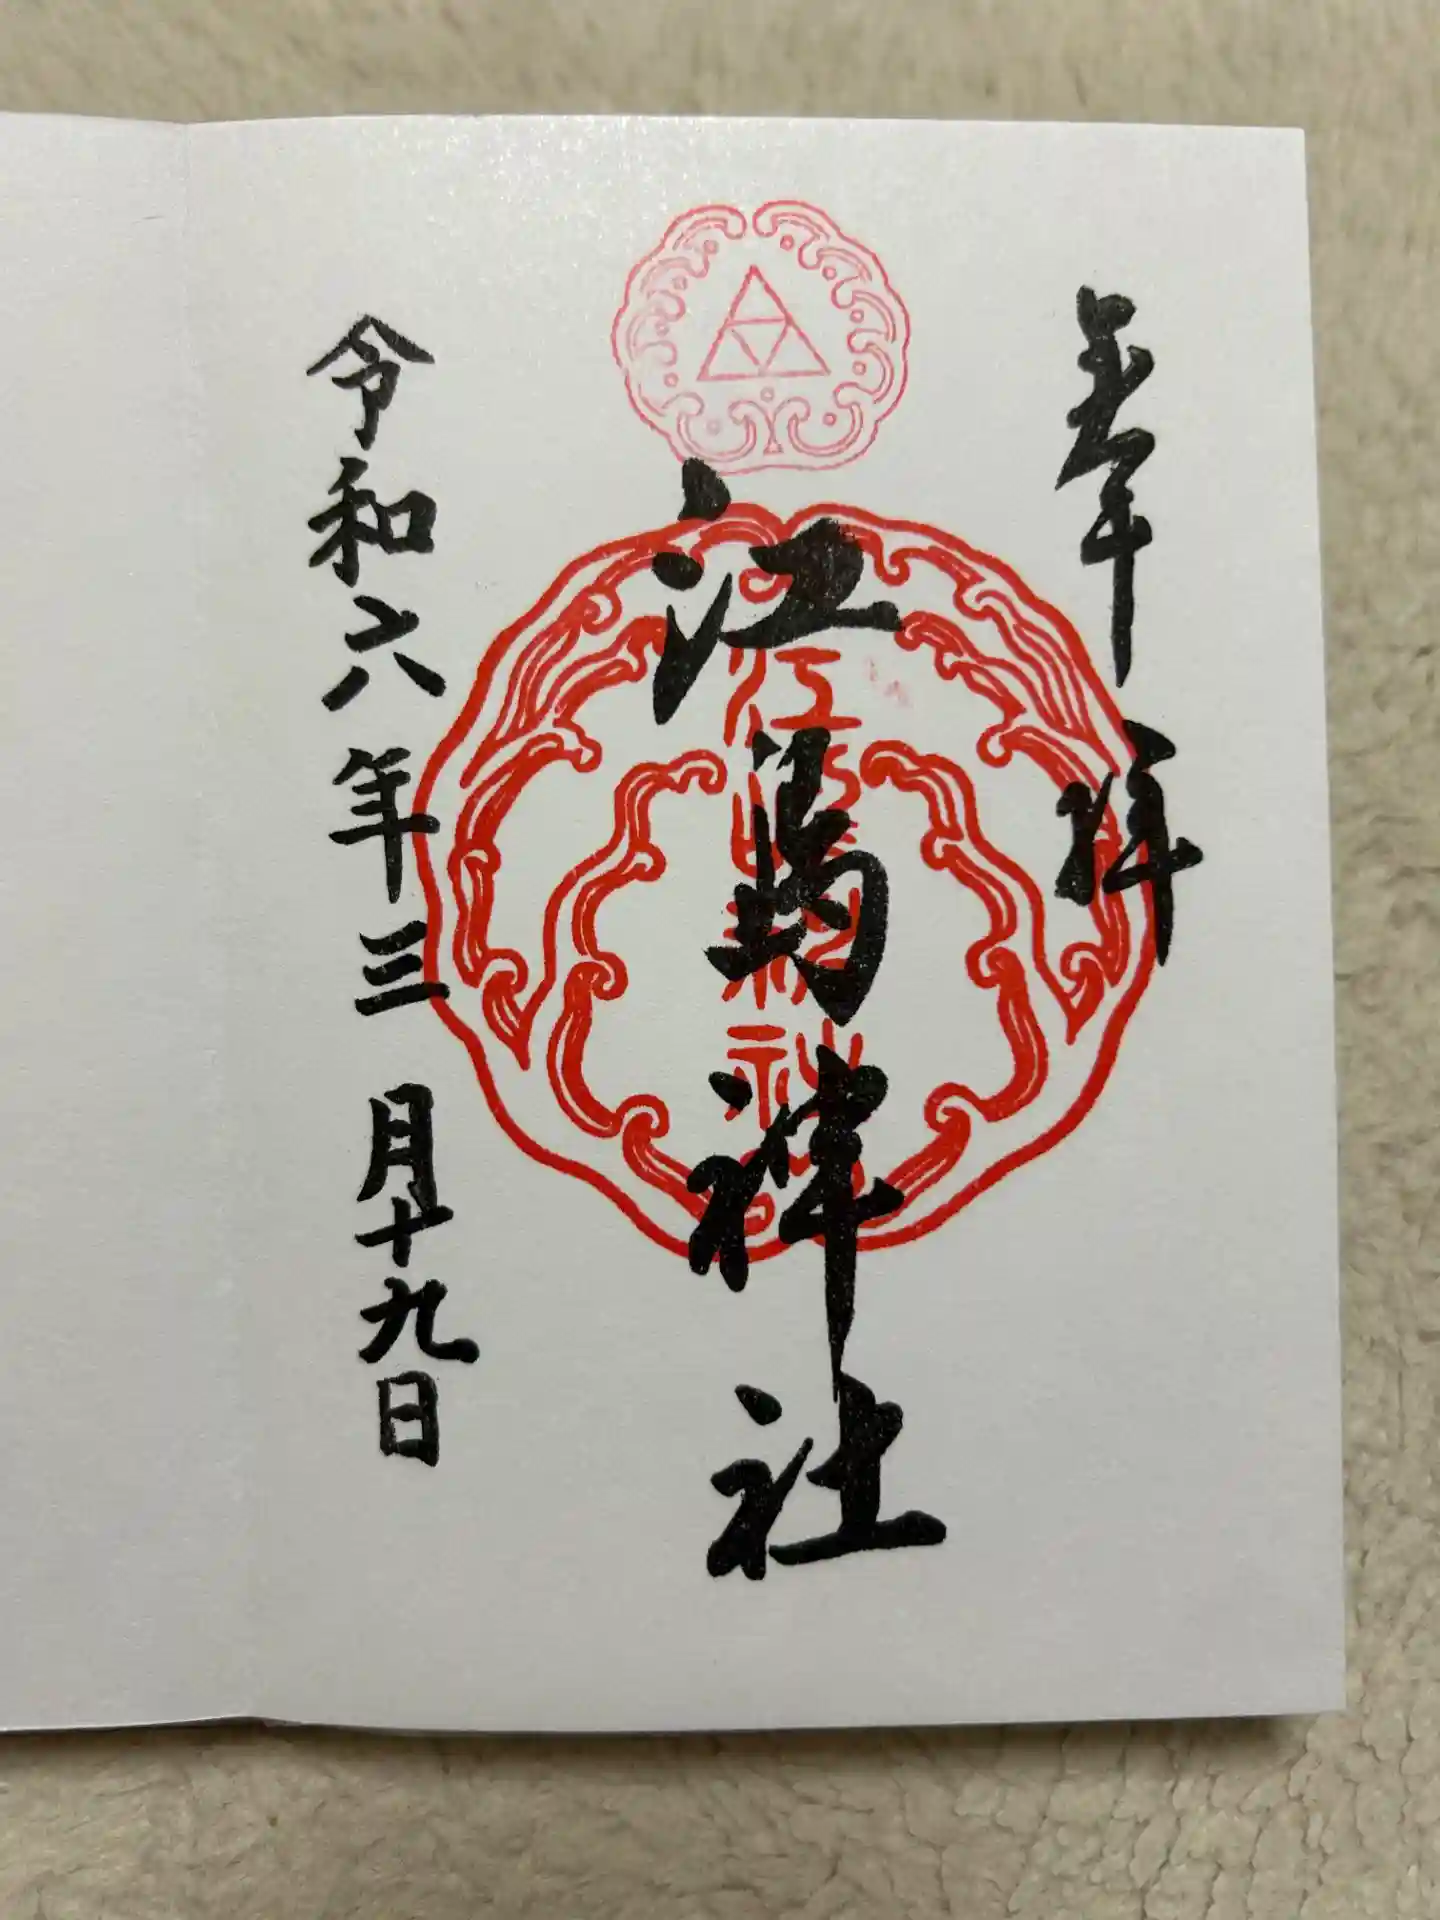 奉拝
江島神社
江島神社
令和六年三月十九日